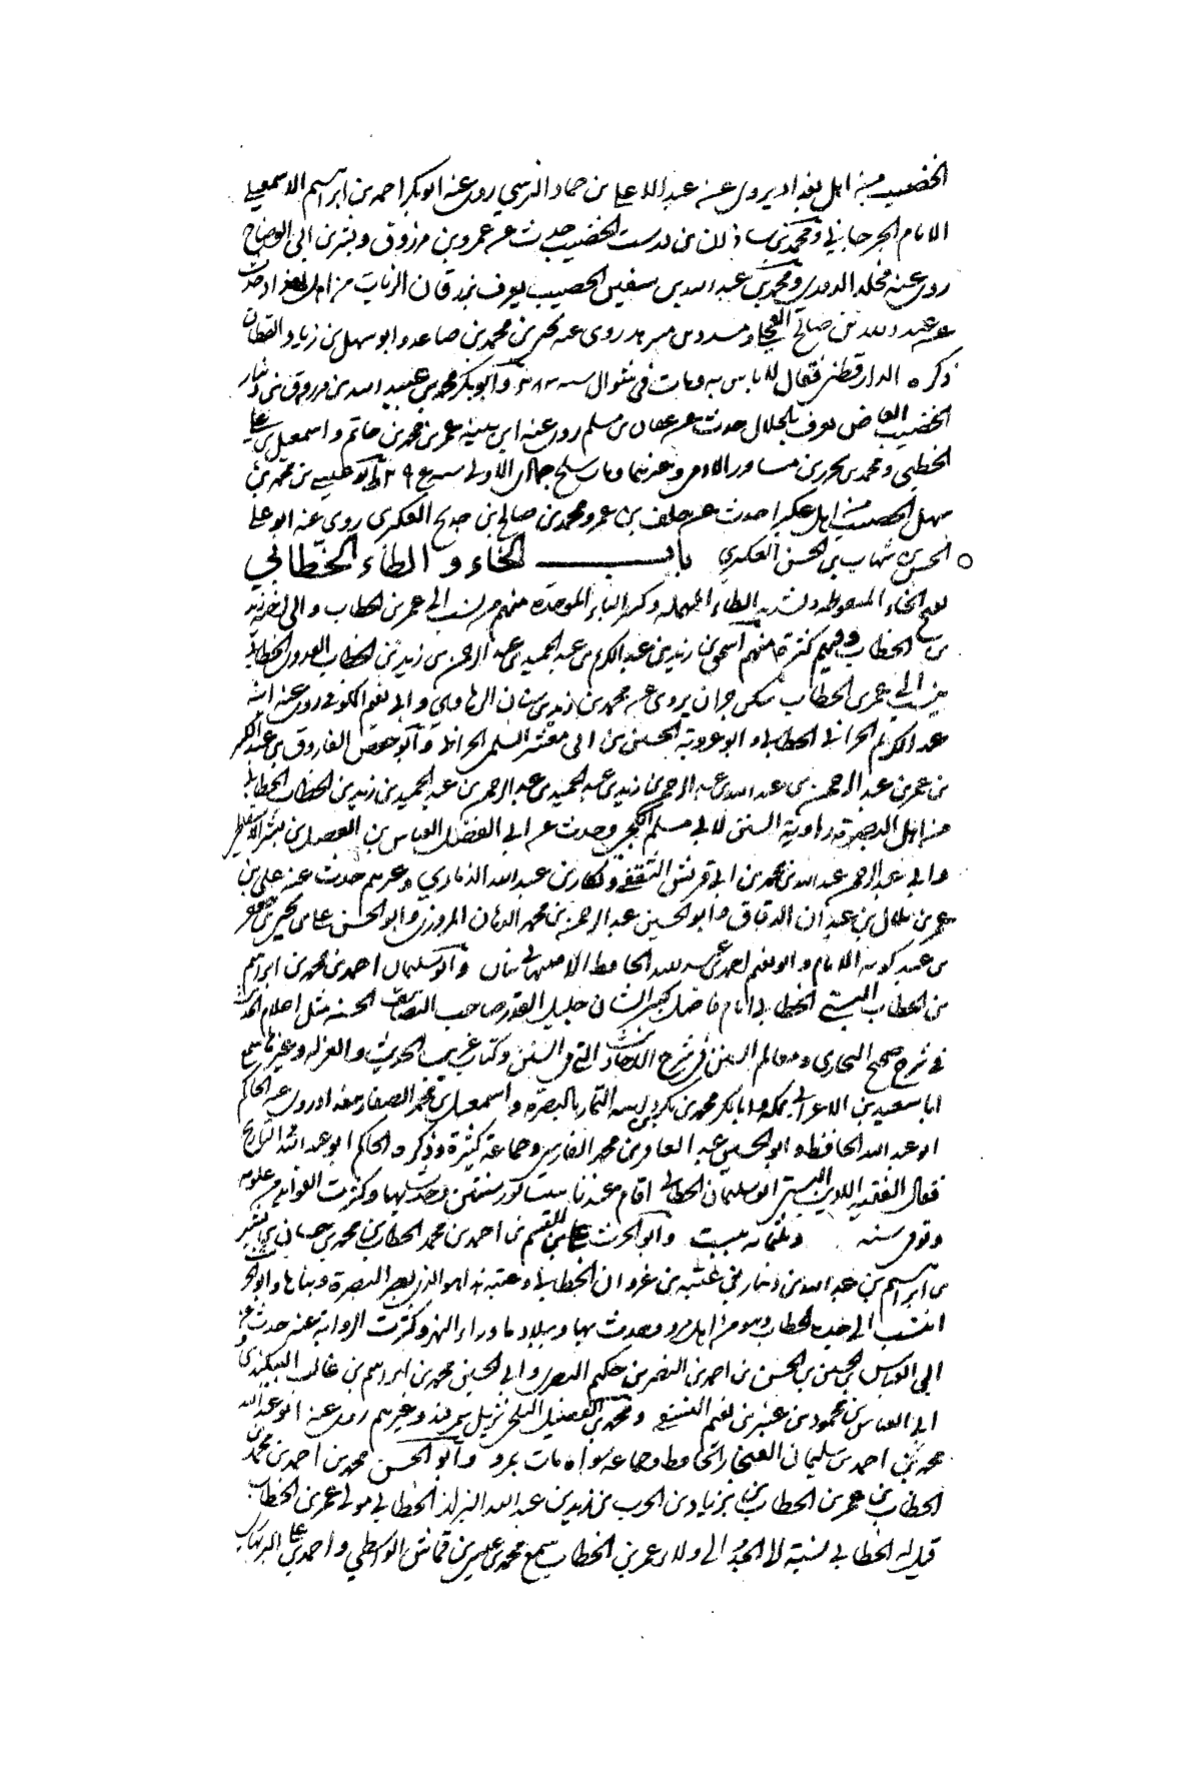 الخضيب من اهل بغداد يروى عن عبد الاعلى بن حماد النرسي روى عنه ابو بكر احمد بن ابراهيم الاسمعيلي
الامام الجرجاني ومحمد بن شاذان بن درست الخضيب حدث عن عمرو بن مرزوق وبشر بن ابي الوضاح
روى عنه مخلد ومحمد بن عبد الله بن سفين الخضيب يعرف بزرقان الزيات من اهل بغداد حدث
عن عبد الله بن صالح العجلي ومسدد بن مسرهد روى عنه يحيى بن محمد بن صاعد وابو سهل بن زياد القطان
ذكره الدارقطني فقال لا باس به ومات في شوال سنه وابو بكر محمد بن عبيد الله بن مرزوق بن دينار
الخضيب القاضي يعرف بالخلال حدث عن عفان بن مسلم روى عنه ابن بنته عمر بن محمد بن حاتم واسمعيل بن علي
الخطبي ومحمد بن وغيرهما ومات سلخ جمادى الاولى وابو عيسى بن محمد بن
سهل الخضيب من اهل عكبرا حدث عن خلف بن عمرو ومحمد بن صالح بن ذريح العكبري روى عنه ابو علي
الحسن بن شهاب بن الحسن العكبري باب الخاء والطاء الخطابي
بفتح الخاء المنقوطه وتشديد الطاء المهمله وكسر الباء الموحده منهم من نسب الى عمر بن الخطاب والى اخيه زيد
بن الخطاب وفيهم كثرة منهم بن زيد بن عبد الكريم بن عبد الحميد بن عبد الرحمن بن زيد بن الخطاب العدوى الخطابي
ينسب الى عمر بن الخطاب سكن حران يروى عن محمد بن يزيد بن سنان الرهاوي وابي نعيم الكوفى روى عنه ابنه
عبد الكريم الحراني الخطابي وابو عروبة الحسين بن ابى معشر السلمي الحراني وابو حفص الفاروق بن عبد الكبير
بن عمر بن عبد الرحمن بن عبد الله بن عبد الرحمن بن زيد بن عبد الحميد بن عبد الرحمن بن عبد الحميد بن زيد بن الخطاب الخطابي
من اهل البصرة راوية السنن لابي مسلم الكجي وحدث عن ابي الفضل العباس بن الفضل بن بشر الاسفاطي
وابي عبد الرحمن عبد الله بن محمد بن ابي قريش الثقفي وبكار بن عبد الله الذماري وغيرهم حدث عنه علي بن
عمر بن بلال بن عبدان الدقاق وابو الحسين عبد الرحمن بن محمد الدهان المروزي وابو الحسن علي بن يحيى بن جعفر
بن عبد كويه الامام وابو نعيم احمد بن عبد الله الحافظ الاصبهانيان وابو سليمان احمد بن محمد بن ابراهيم
بن الخطاب البستي الخطابي امام فاضل كبير الشان جليل القدر صاحب التصانيف الحسنه مثل اعلام الحديث
في شرح صحيح البخاري ومعالم السنن في شرح الاحاديث التي في السنن وكتاب غريب الحديث والعزله وغيرها سمع
ابا سعيد بن الاعرابي بمكه وابا بكر محمد بن بكر بن داسه التمار بالبصره واسمعيل بن محمد الصفار ببغداد روى عنه الحاكم
ابو عبد الله الحافظ وابو الحسين عبد الغافر بن محمد الفارسي وجماعة كثيرة وذكره الحاكم ابو عبد الله التاريخ
فقال الفقيه الاديب البستي ابو سليمان الخطابي اقام عندنا بنيسابور سنتين وحدث بها وكثرت الفوايد من علومه
وتوفى سنه وثلثمائه ببست وابو الحرث علي بن القسم بن احمد بن محمد الخطابي بن محمد بن حسان بن بشير
بن ابراهيم بن عبد الله بن دينار بن عتبه بن غزوان الخطابي وعتبه هذا هو الذي بصر البصرة وبناها وابو الحرث
انتسب الى جده الخطاب وهو من اهل مرو وحدث بها وببلاد ما وراء النهر وكثرت الرواية عنه حدث عن
ابي العباس بن الحسين بن الحسن بن احمد بن النضر بن حكيم البصري وابي الحسين محمد بن ابراهيم بن غالب البيكندي
ابي العباس بن محمود بن عنبر بن نعيم النسفي ومحمد بن الفضيل البلخي نزيل سمرقند وغيرهم روى عنه ابو عبد الله
محمد بن احمد بن سليمان الغنجار الحافظ وجماعه سواه مات بمرو وابو الحسن محمد بن احمد بن محمد بن
الخطاب بن عمر بن الخطاب بن زياد بن الحرث بن زيد بن عبد الله البزاز الخطابي مولى عمر بن الخطاب
قيل له الخطابي لنسبته الى الجد والى ولاء عمر بن الخطاب سمع محمد بن عيسى بن قماش الواسطي واحمد بن علي البربهاري